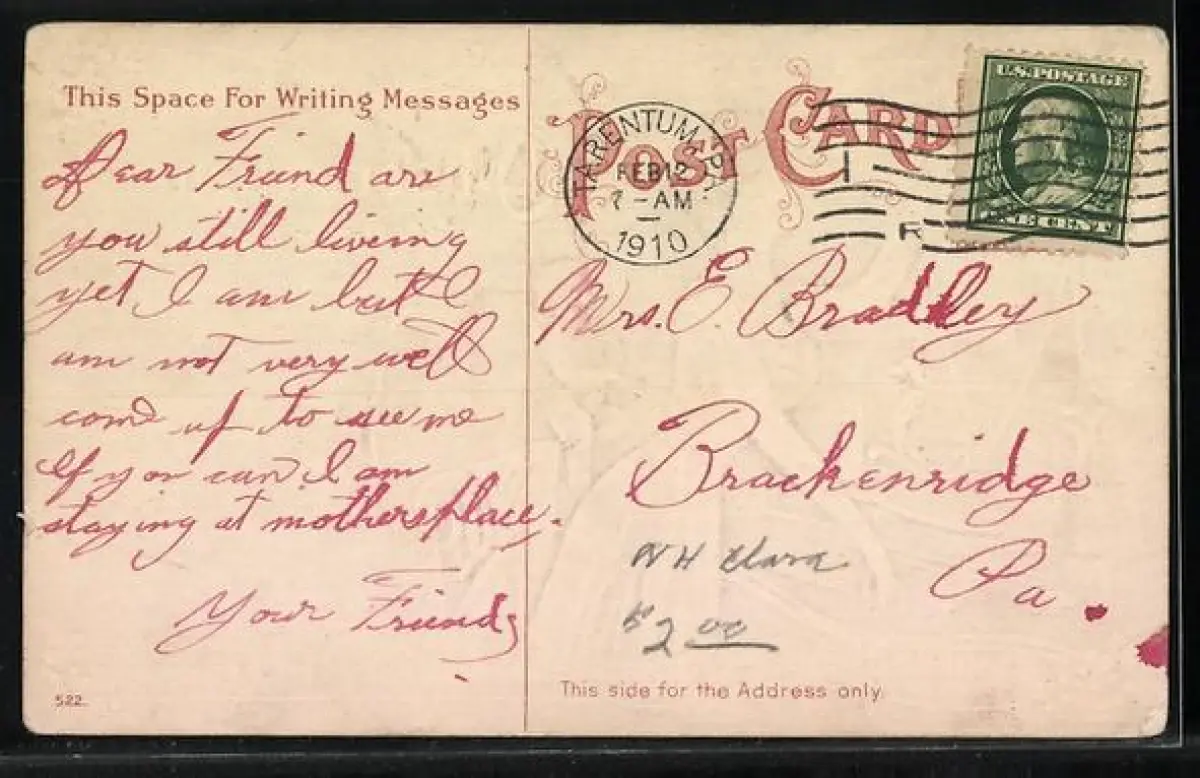 This Space For Writing Messages
Dear Friend are
you still liveing
yet I am but I
am not very well
come up to see me
if you can I am
staying at mothers place.
Your Friend
522.
POST CARD
TARENTUM, PA.
FEB 12
7-AM
1910
U.S. POSTAGE
ONE CENT
Mrs. E. Bradley
Brackenridge
Pa.
$2.00
This side for the Address only.